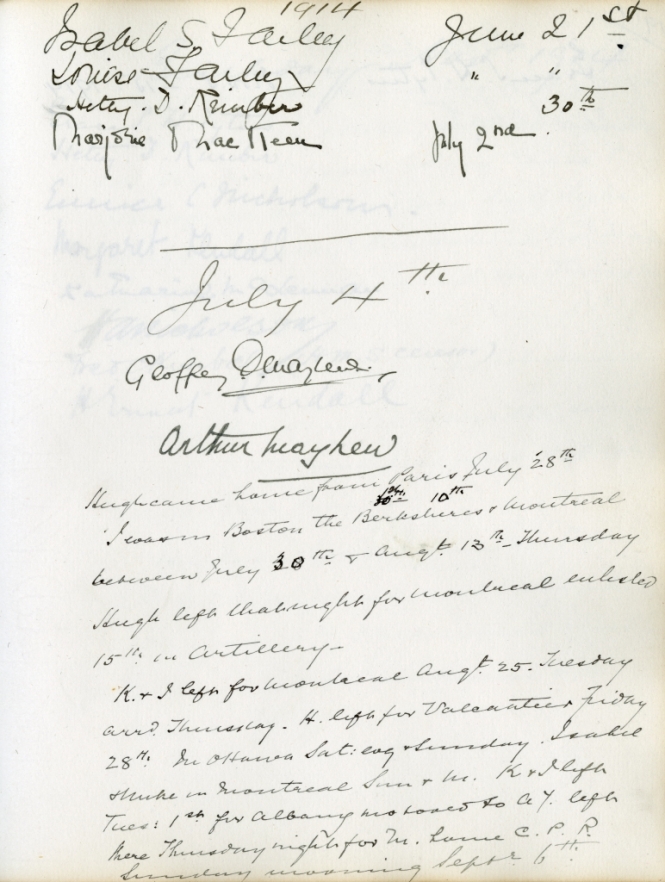 1914
Isabel S. Farley June 21st.
Louise Farley " "
Hetty. D. Kimber 30th
Marjorie MacKeen July 2nd.
July 4th
Geoffrey D. Mayhew.
Arthur Mayhew
Hugh came home from Paris July 28th
10th
I was in Boston the Berkshires & Montreal
between July 30th & Augt. 13th - Thursday
Hugh left that night for Montreal enlisted
15th in Artillery -
K. & I left for Montreal Augt. 25. Tuesday
arrd. Thursday. H. left for Valcartier Friday
28th. In Ottawa Sat: evg & Sunday. Isabel
& Mike in Montreal Sun & M. K & I left
Tues: 1st for Albany motored to N.Y. left
there Thursday night for M. home C. P. R.
Sunday morning Septr 6th